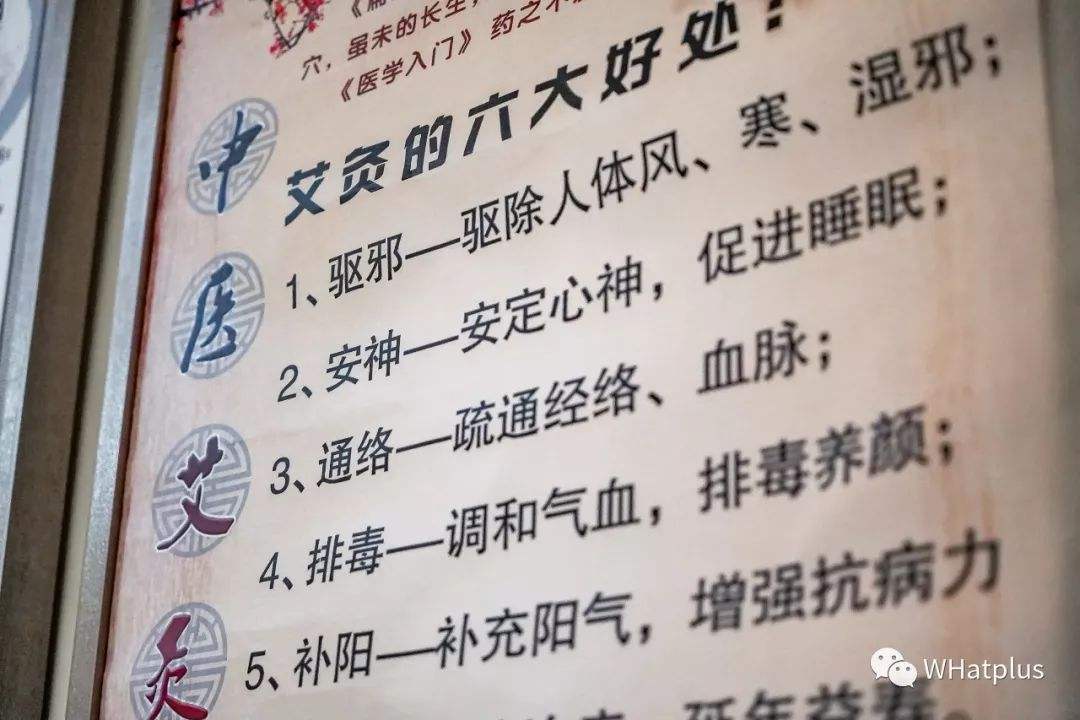 穴，虽未的长生，
《医学入门》药之不
艾灸的六大好处：
1、驱邪—驱除人体风、寒、湿邪；
2、安神—安定心神，促进睡眠；
3、通络—疏通经络、血脉；
4、排毒—调和气血，排毒养颜；
5、补阳—补充阳气，增强抗病力
延年益寿。
中
医
艾
灸
WHatplus